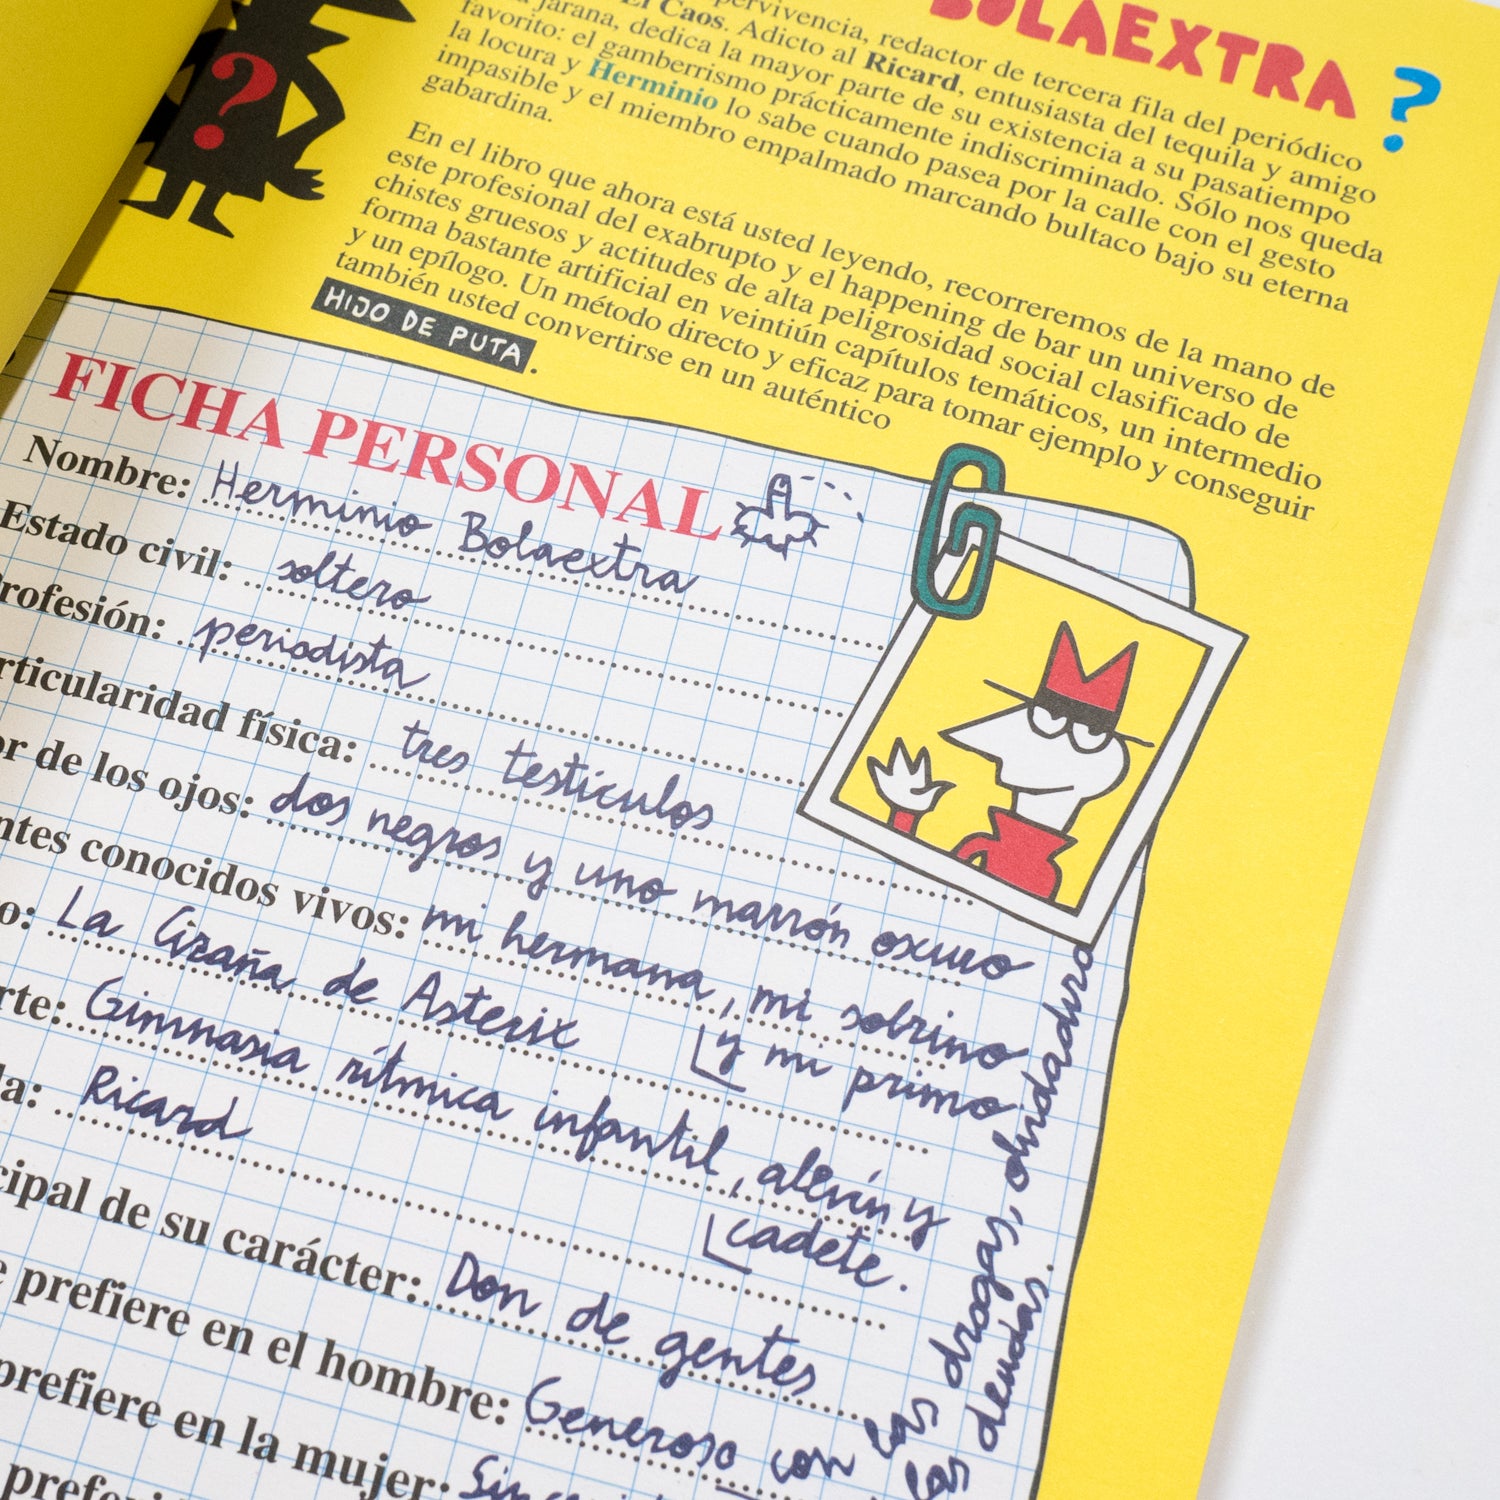 BOLAEXTRA?
?
pervivencia, redactor de tercera fila del periódico
El Caos. Adicto al Ricard, entusiasta del tequila y amigo
jarana, dedica la mayor parte de su existencia a su pasatiempo
favorito: el gamberrismo prácticamente indiscriminado. Sólo nos queda
la locura y Herminio lo sabe cuando pasea por la calle con el gesto
impasible y el miembro empalmado marcando bultaco bajo su eterna
gabardina.
En el libro que ahora está usted leyendo, recorreremos de la mano de
este profesional del exabrupto y el happening de bar un universo de
chistes gruesos y actitudes de alta peligrosidad social clasificado de
forma bastante artificial en veintiún capítulos temáticos, un intermedio
y un epílogo. Un método directo y eficaz para tomar ejemplo y conseguir
también usted convertirse en un auténtico
HIJO DE PUTA.
FICHA PERSONAL
Nombre: Herminio Bolaextra
Estado civil: soltero
rofesión: periodista
rticularidad física: tres testículos
or de los ojos: dos negros y uno marrón oscuro
ntes conocidos vivos: mi hermana, mi sobrino
y mi primo
o: La Cizaña de Asterix
rte: Gimnasia rítmica infantil, alevín y
cadete.
da: Ricard
cipal de su carácter: Don de gentes
e prefiere en el hombre: Generoso con
las drogas, olvidadizo
las deudas.
prefiere en la mujer: